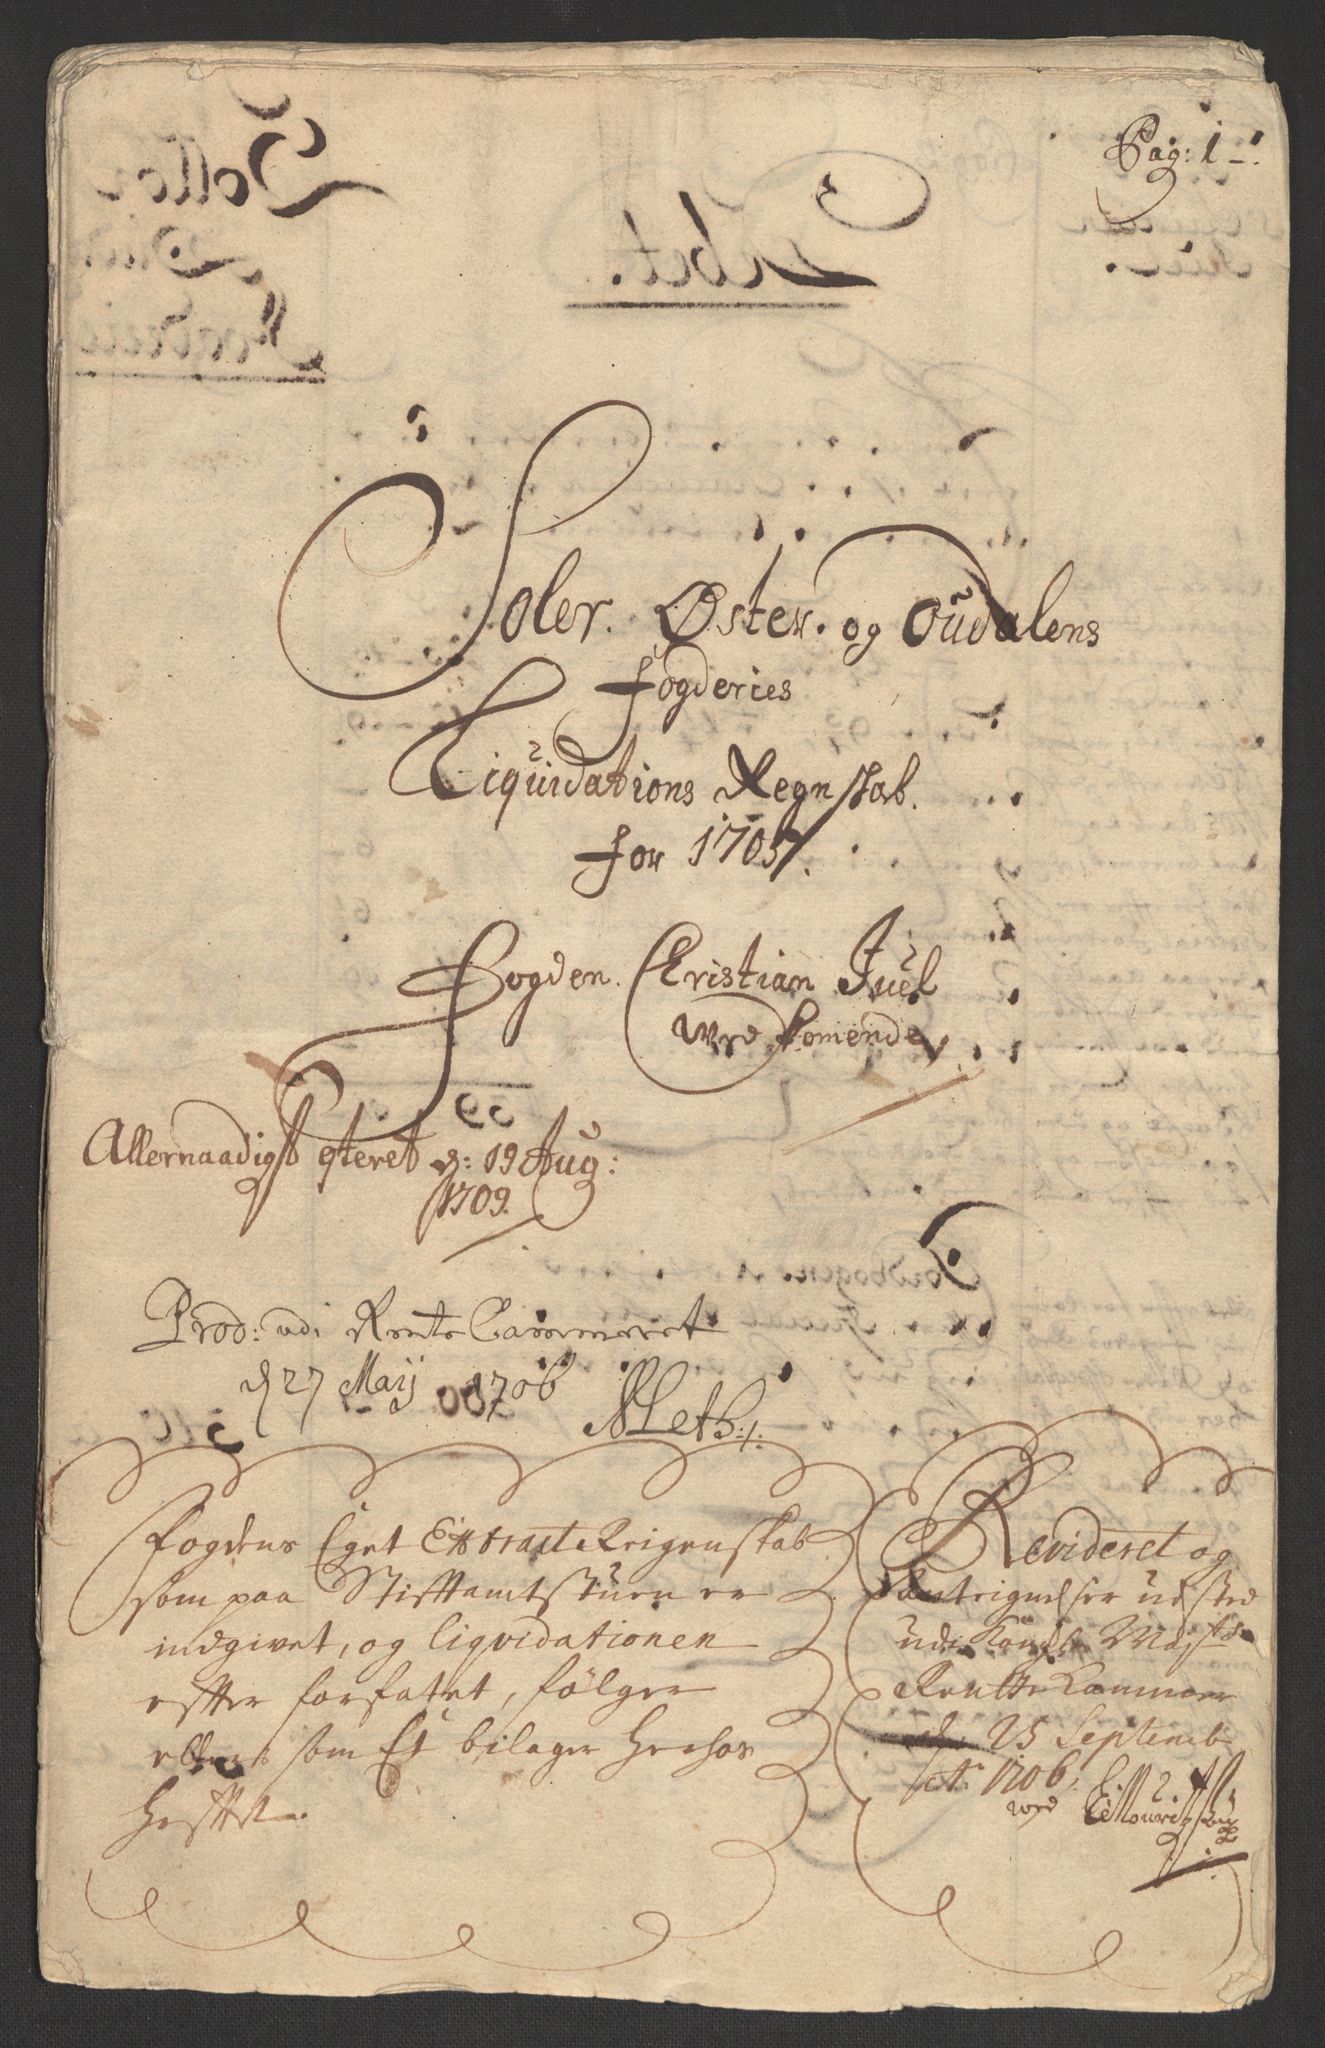 Pag: 1
Soler. Øster. og Oudalens
fogderies
Liquidations Regnskab.
for 1705
Fogden. Christian Juel
wed Komende
Allernaadigst qteret d: 19 Aug:
1709.
Prod: udi Rente Cammeret
d 27 Maij 1706
Fogdens Eget Extract Reigenskab
som paa Stifftamtstuen er
indgivet, og liqvidationen
effter forfatet, følger
ellers som Et bilager herhos
Hefftet.
Revideret og
antegnelser udsted
udi Kongl. Mayts
Rentte Kammer
den 25 Septemb
Ao 1706.
wed